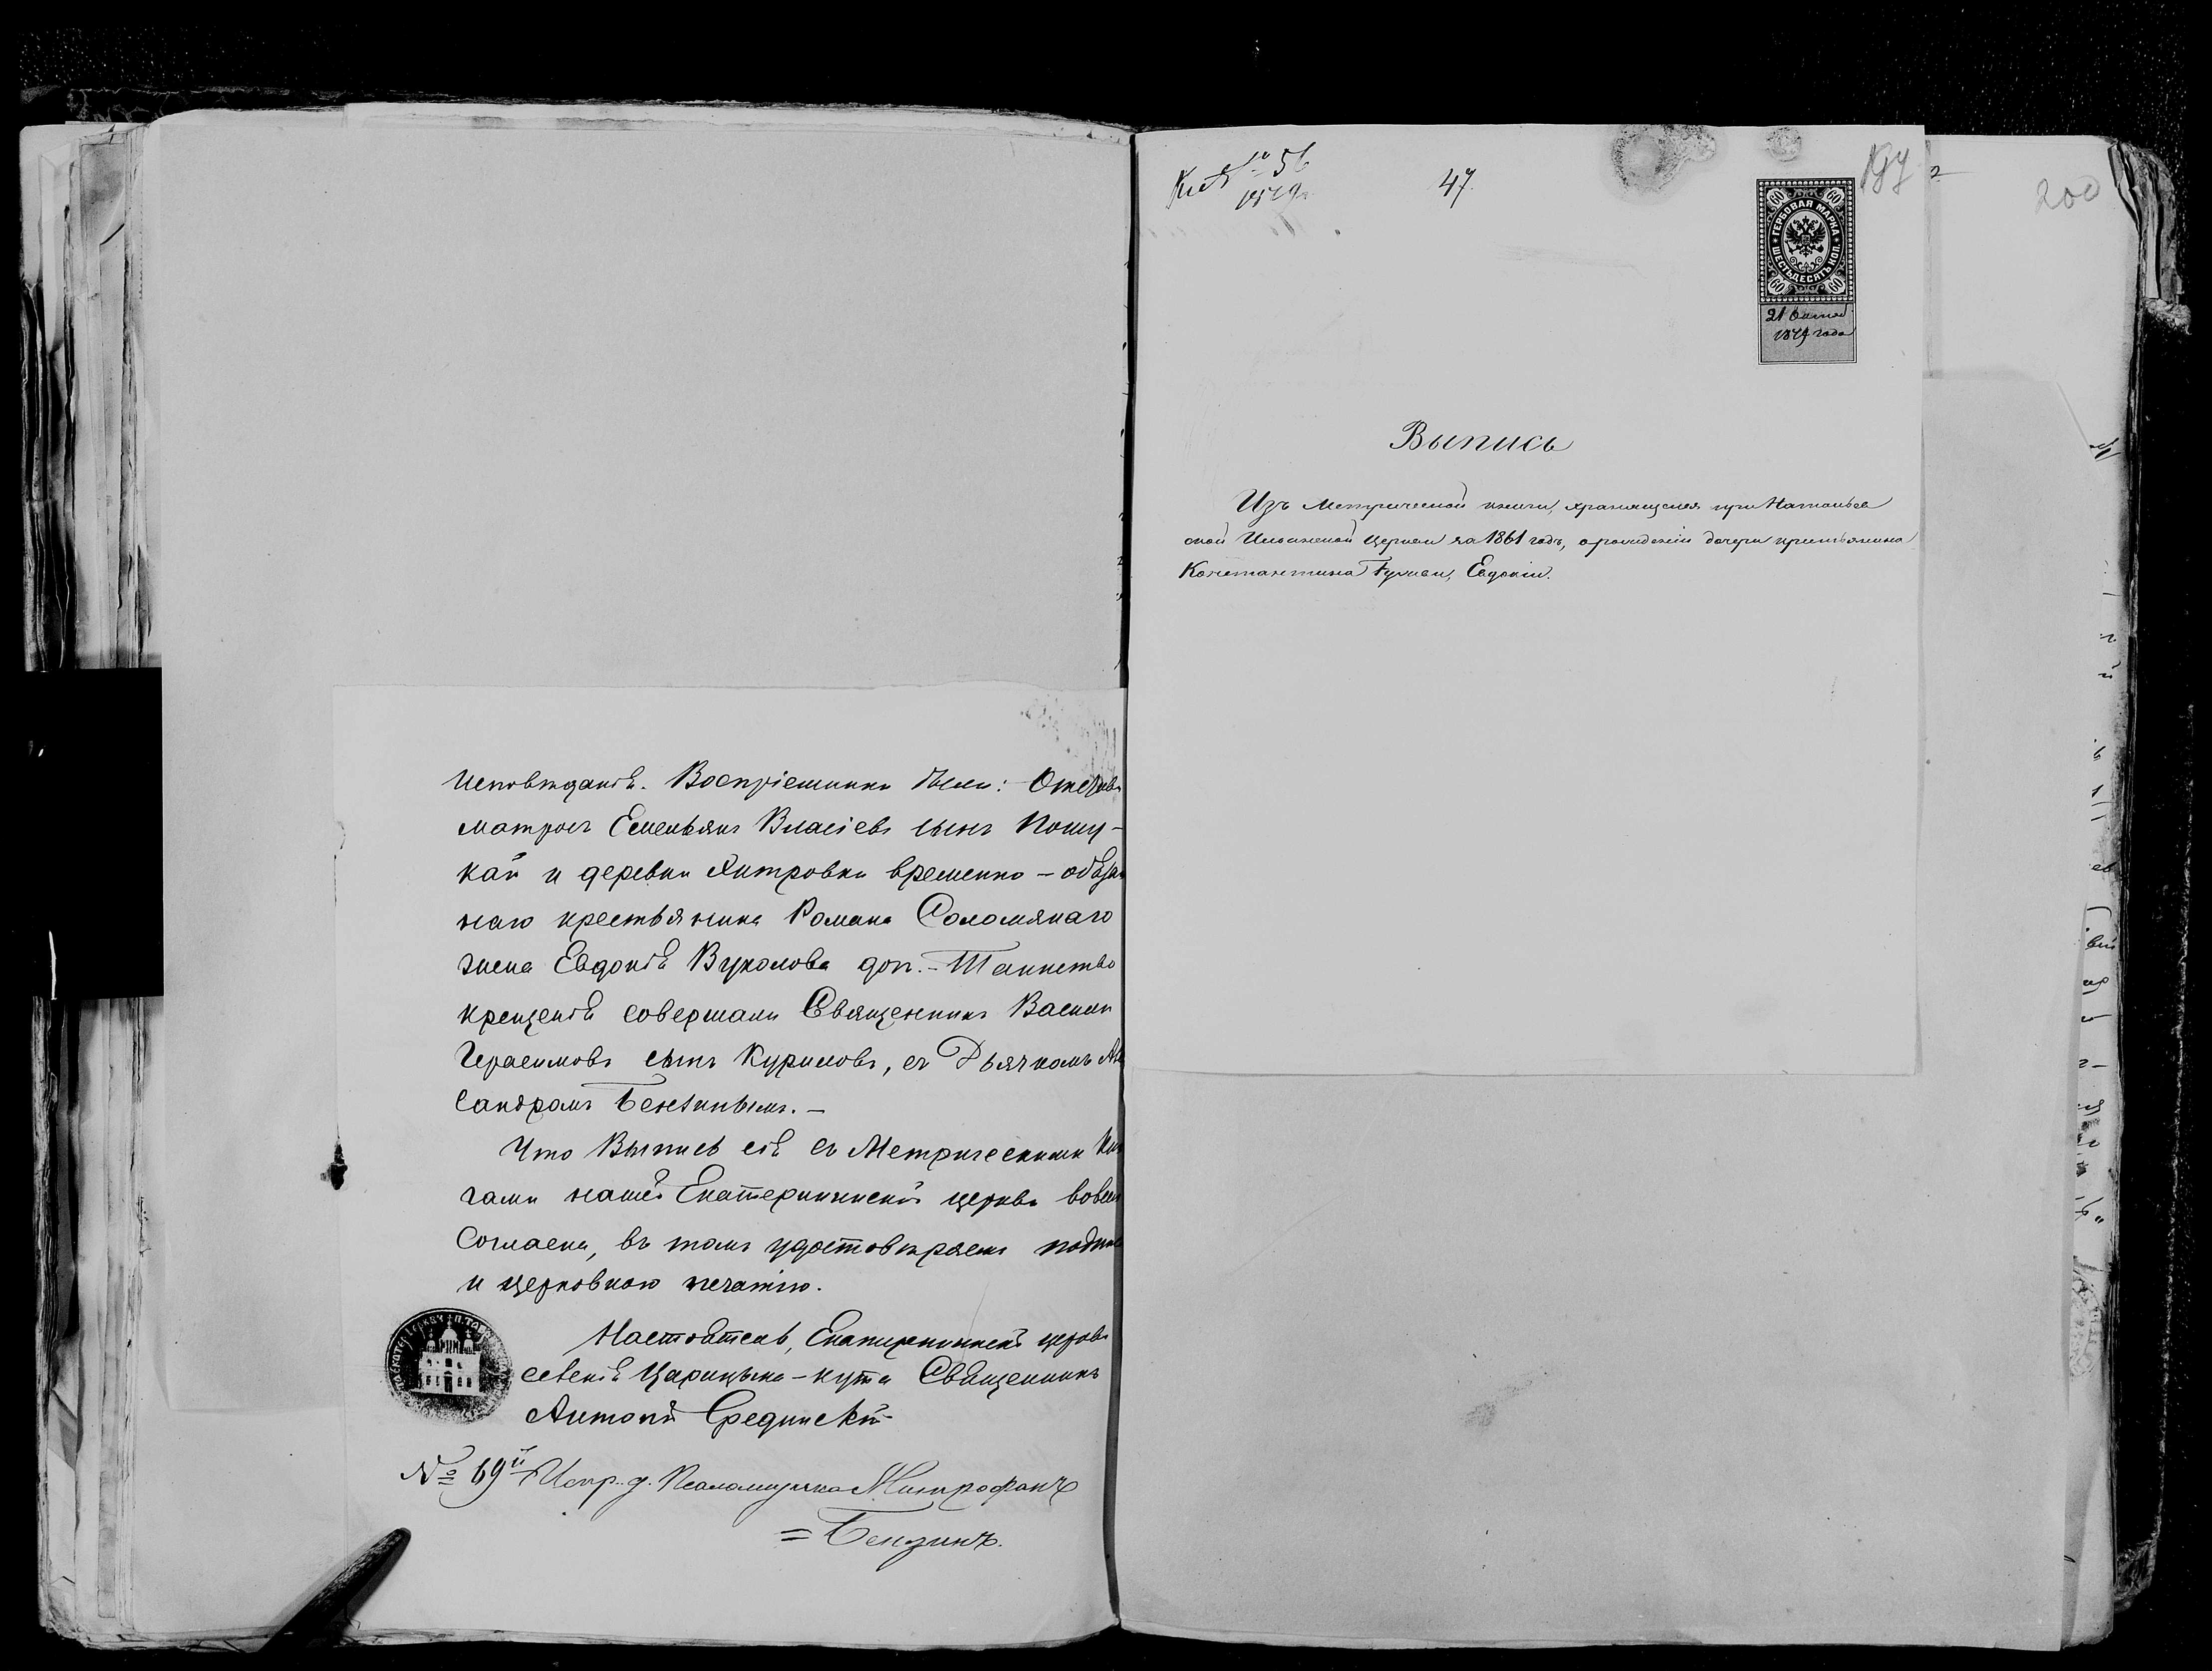 исповѣданія. Воспріемники были: Отстав
матросъ Емельянъ Власіевъ сынъ Пошу-
кай и деревни Хитровки временно-обязан
наго крестьянина Романа Соломянаго
жена Евдокія Вуколова доч. – Таинство
крещенія совершали Священникъ Васили
Герасимовъ сынъ Куриловъ, съ Дьячкомъ Але
сандромъ Бензинымъ. –
Что Выпись сія съ Метрическими Кни
гами нашей Екатерининской церкви вовсем
Согласна, въ томъ удостовѣряемъ подпис
и церковною печатію.
Настоятель, Екатерининской церкви
селенія Царицына-кута Священникъ
Антоній Срединскій
№ 69й Испр. д. Псаломщика Митрофанъ
= Бензинъ.
Къ № 56
1879 г.
47.
197
2
200
ГЕРБОВАЯ МАРКА
ШЕСТЬДЕСЯТЪ КОП.
60 60
60 60
21 Октяб
1879 года
Выпись
Изъ Метрической книги, хранящейся при Натальев
ской Ильинской Церкви за 1861 годъ, о рожденіи дочери крестьянина
Константина Гужви, Евдокіи.